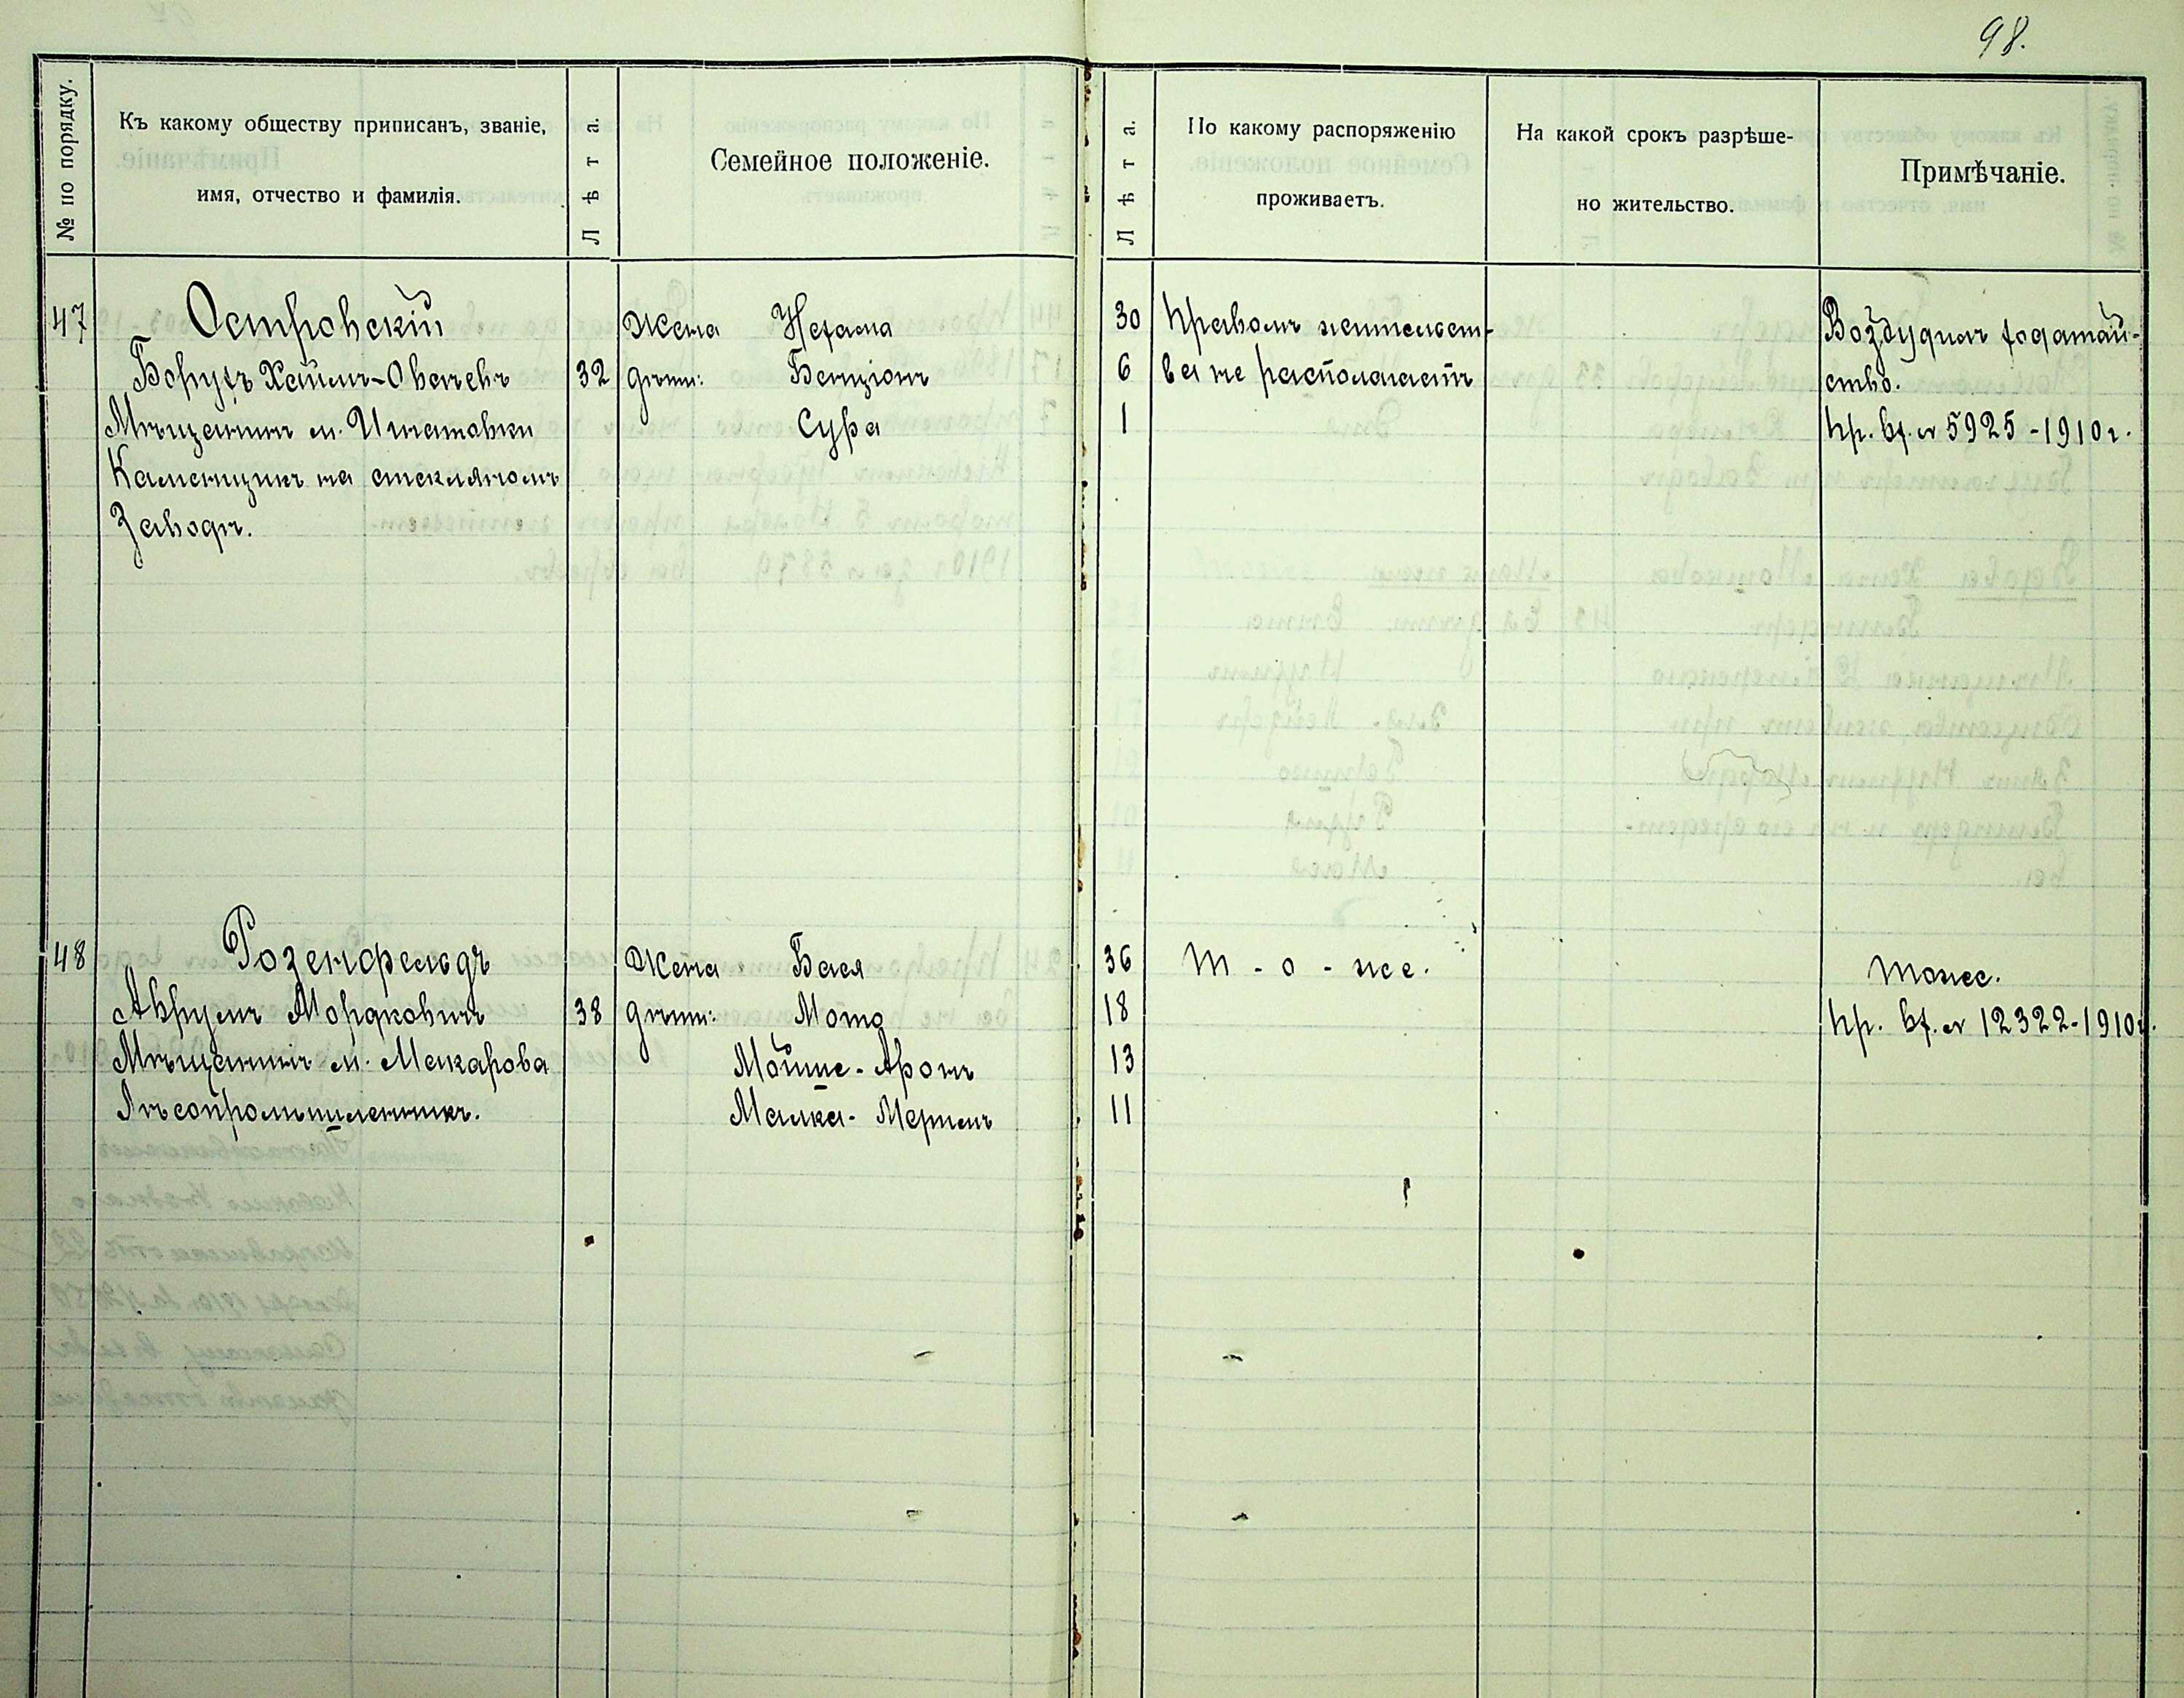 98.
№ по порядку.
Къ какому обществу приписанъ, званіе,
имя, отчество и фамилія.
Лѣта.
Семейное положеніе.
Лѣта.
По какому распоряженію
проживаетъ.
На какой срокъ разрѣше-
но жительство.
Примѣчаніе.
47
Островскій
Борухъ Хаимъ-Овсеевъ 32
Мѣщанинъ м. Игнатовки
Каменщикъ на стекляномъ
Заводѣ.
Жена Нехама 30
дѣти: Бенціонъ 6
Сура 1
Правомъ жительст-
ва не располагаетъ
Возбудилъ ходатай-
ство.
Пр. вх. № 5925-1910 г.
48
Розенфельдъ
Аврумъ Мордковичъ 38
Мѣщанинъ м. Макарова
Лѣсопромышленникъ.
Жена Бася 36
дѣти: Мота 18
Мойше-Аронъ 13
Малка- 11
т-о-же.
тоже.
Пр. вх. № 12322-1910 г.